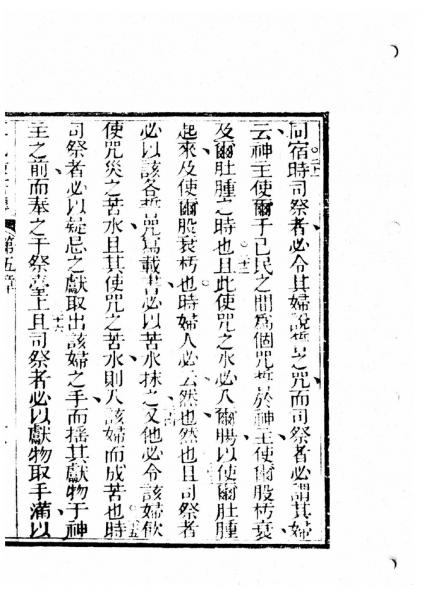 同宿時二十一司祭者必令其婦說誓之咒而司祭者必謂其婦
云神主使爾于己民之間爲個咒誓於神主使爾股朽衰
及爾肚腫之時也二十二且此使咒之水必入爾腸以使爾肚腫
起來及使爾股衰朽也時婦人必云然也然也且司祭者
必以該各誓咒寫載書必以苦水抹之又他必令該婦飲
使咒災之苦水且其使咒之苦水則入該婦而成苦也時
司祭者必以疑忌之獻取出該婦之手而搖其獻物于神
主之前而奉之于祭臺上二十六且司祭者必以獻物取手滿以
第五章